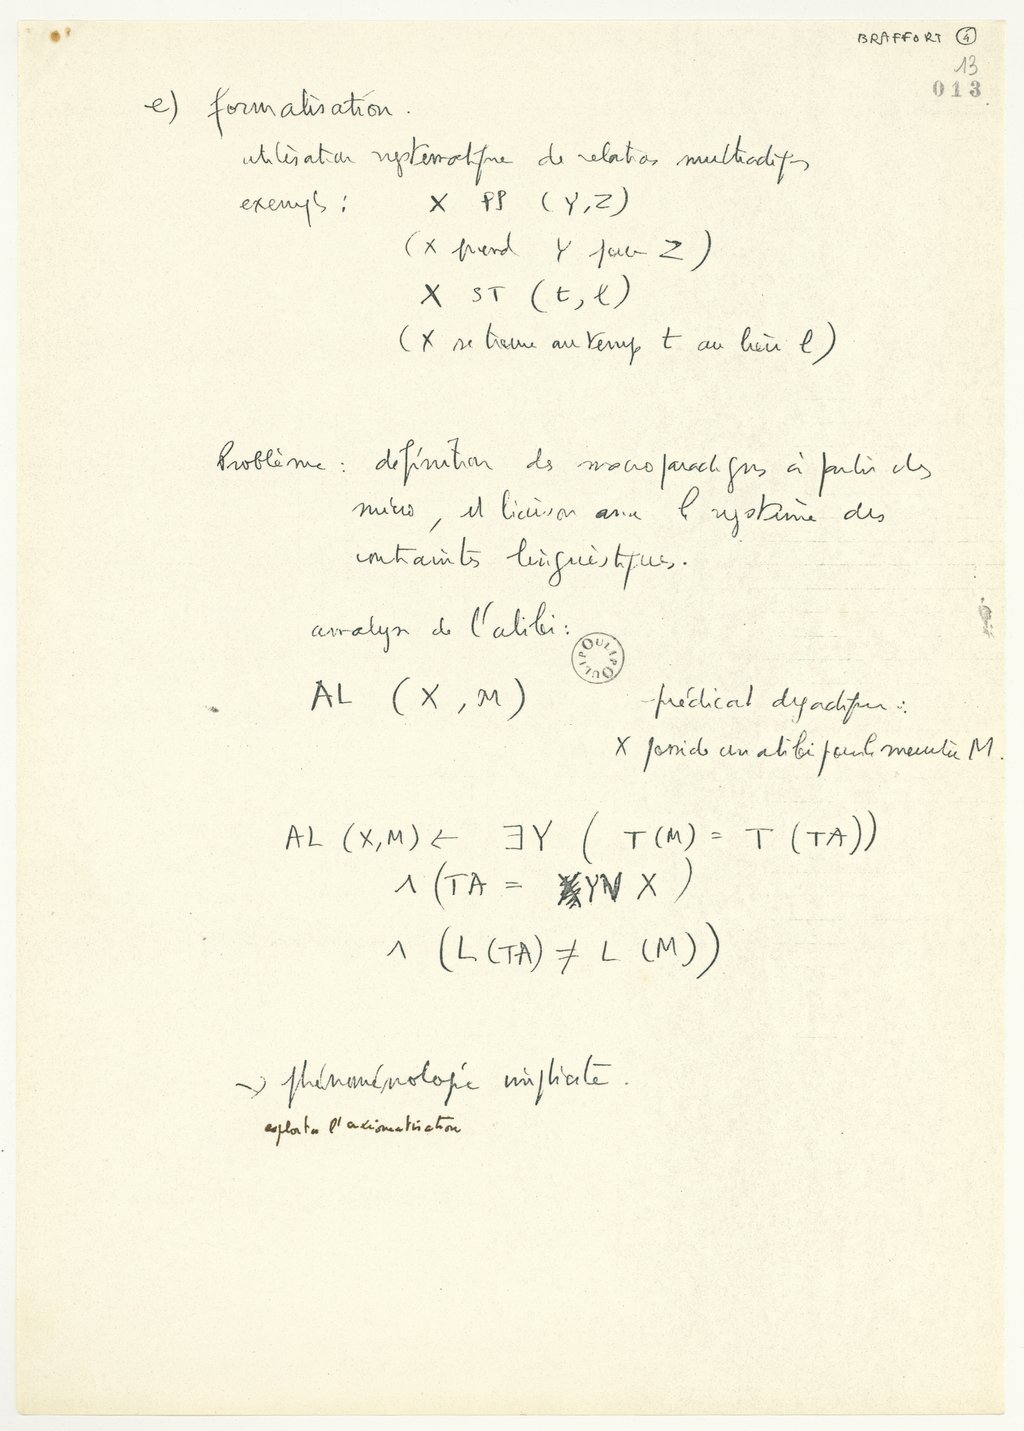 BRAFFORT 4
13
013
e) formalisation.
utilisation systématique de relations multiadiques
exemples :   X PP (Y, Z)
(X prend Y pour Z)
X ST (t, l)
(X se trouve au temps t au lieu l)
Problème : définition des macroparadigmes à partir des
micro, et liaison avec le système des
contraintes linguistiques.
analyse de l'alibi :
OULIPO OULIPO
AL (X, M)   prédicat dyadique :
X possède un alibi pour le meurtre M.
AL (X,M) ← ∃Y ( T(M) = T (TA))
∧ (TA = YV X )
∧ (L(TA) ≠ L (M))
→ phénoménologie implicite.
exploiter l'axiomatisation